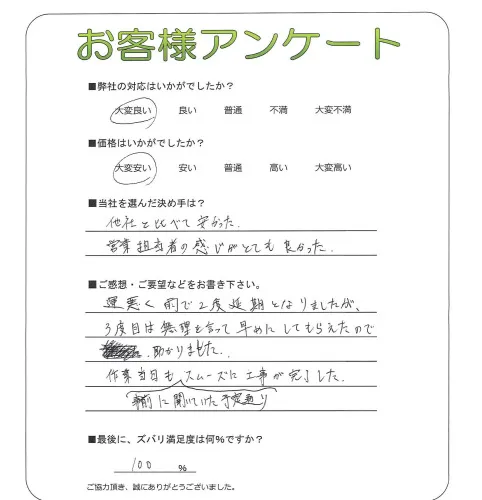 お客様アンケート
■弊社の対応はいかがでしたか？
大変良い 良い 普通 不満 大変不満
■価格はいかがでしたか？
大変安い 安い 普通 高い 大変高い
■当社を選んだ決め手は？
他社と比べて安かった.
営業担当者の感じがとても良かった.
■ご感想・ご要望などをお書き下さい。
運悪く雨で2度延期となりましたが、
3度目は無理を言って早めにしてもらえたので
.助かりました..
作業当日もスムーズに工事が完了した.
事前に聞いていた予定通り
■最後に、ズバリ満足度は何%ですか？
100 %
ご協力頂き、誠にありがとうございました。